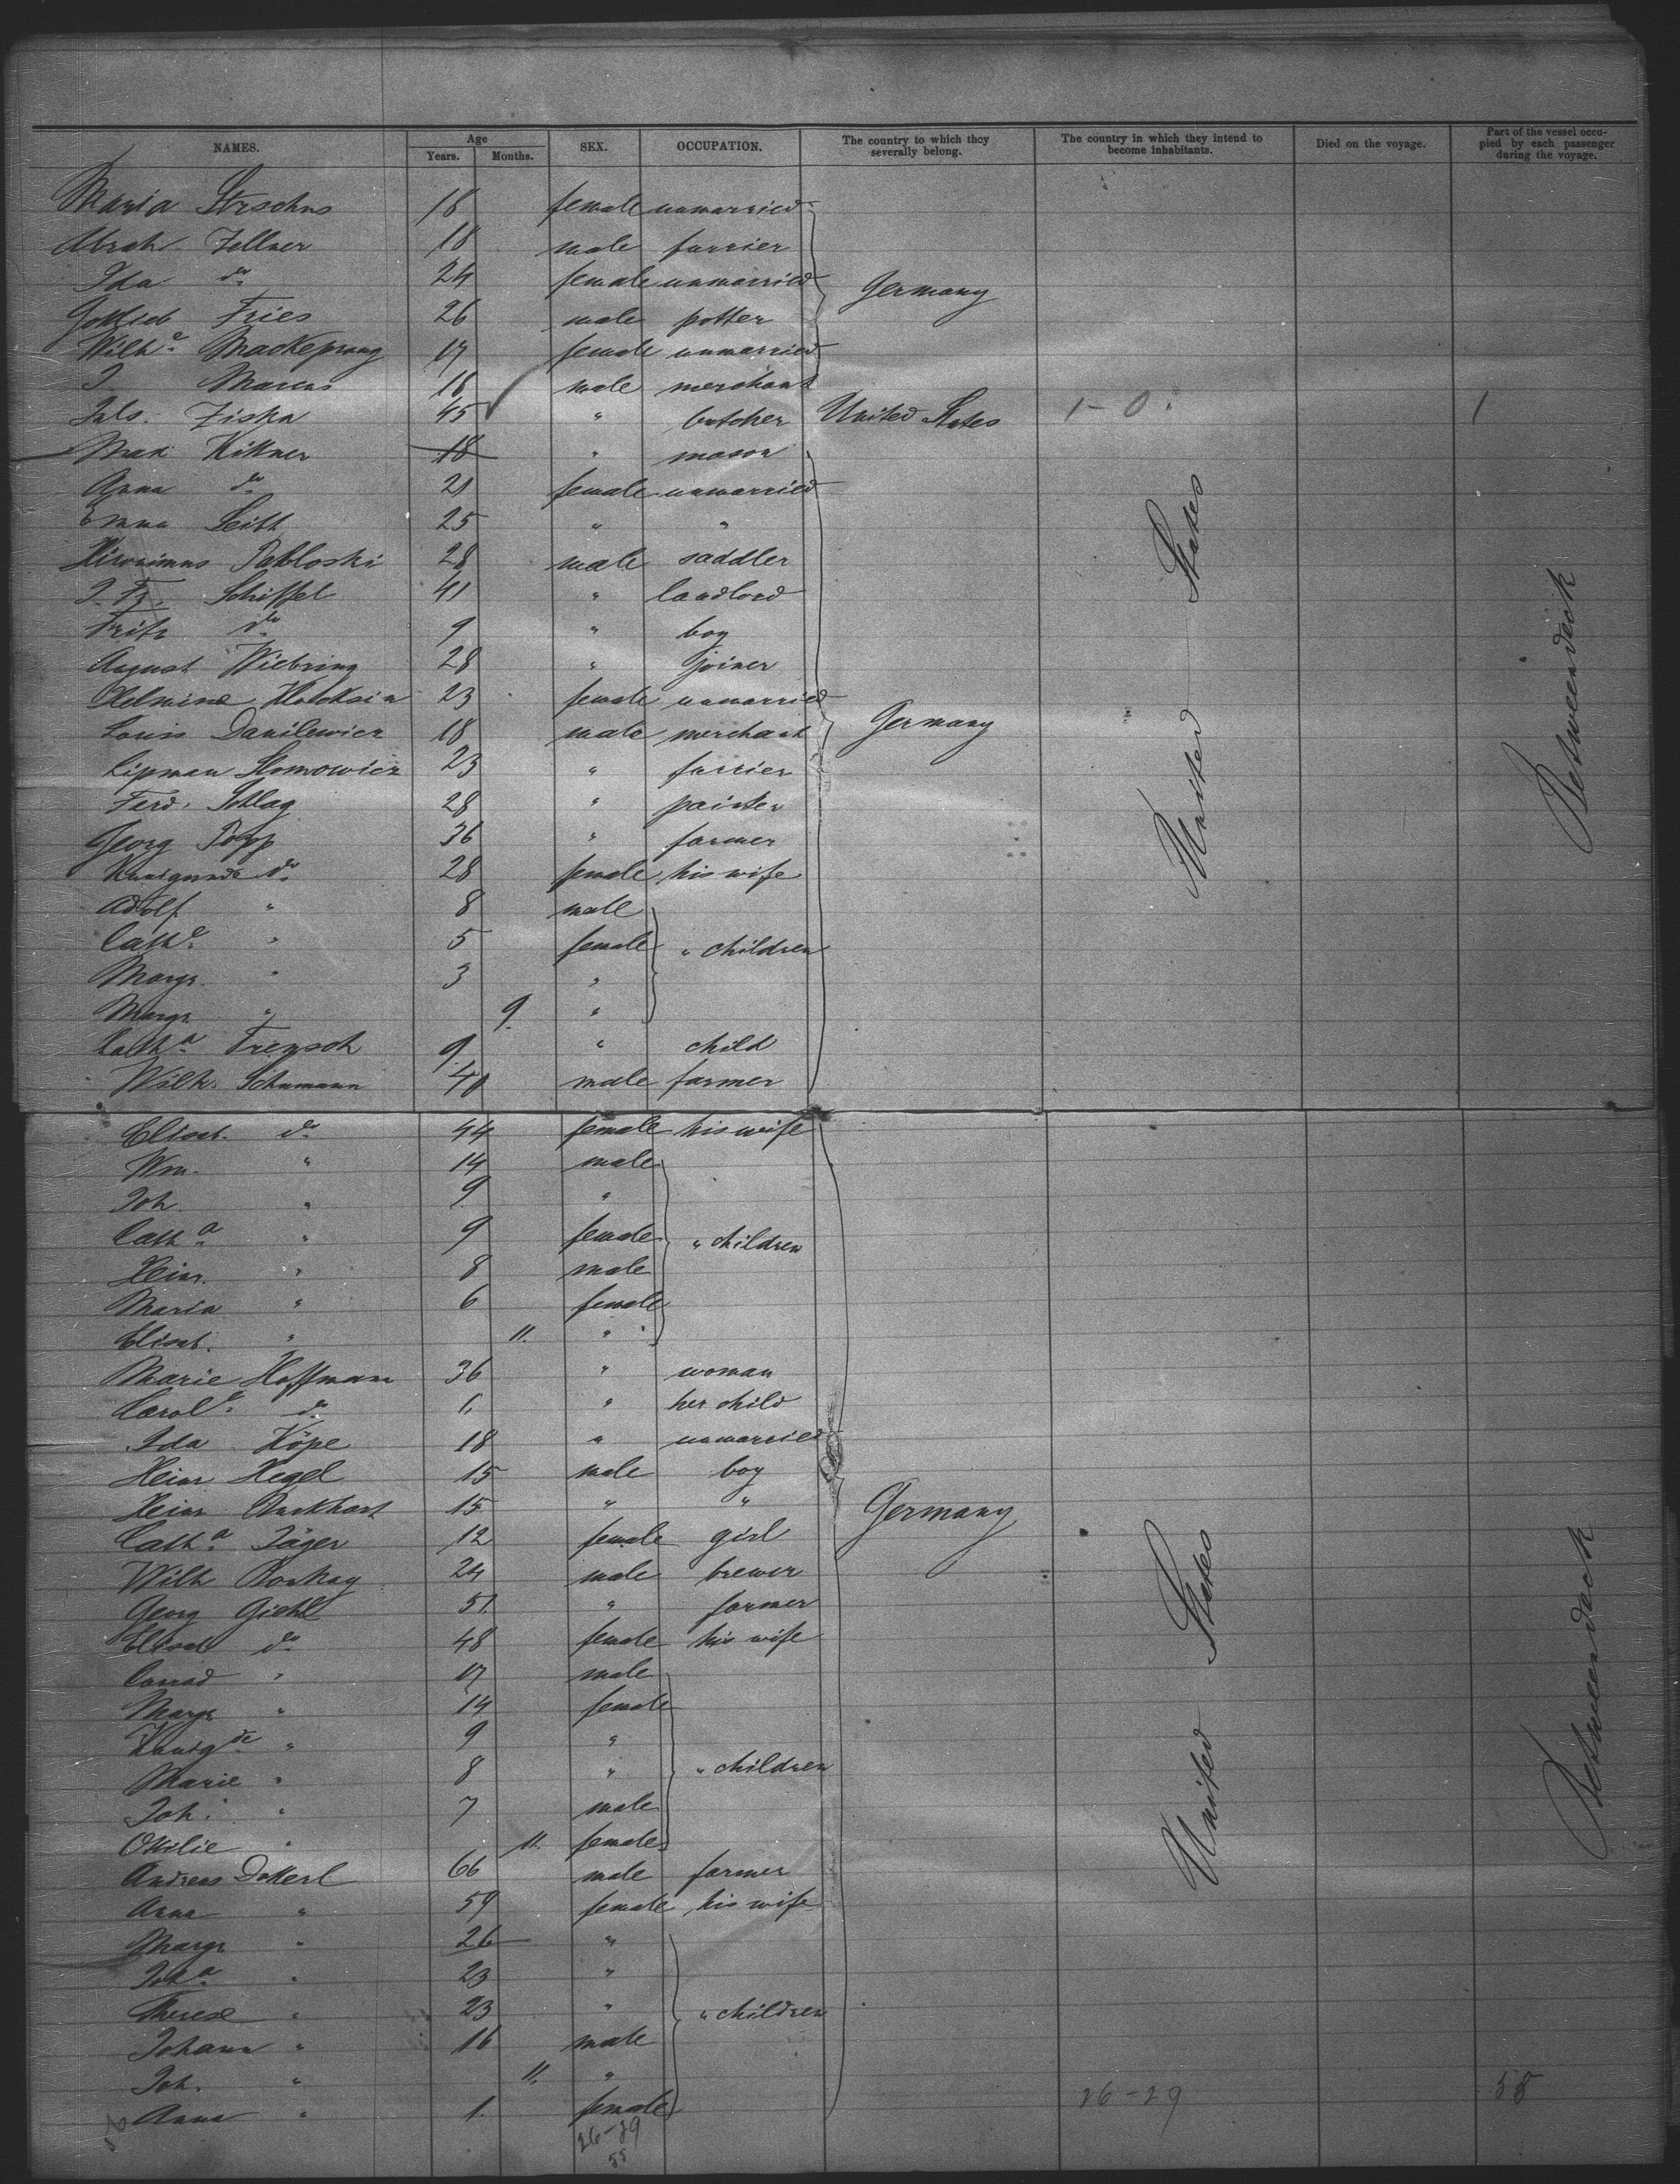 NAMES. Age Years. Months. SEX. OCCUPATION. The country to which they severally belong. The country in which they intend to become inhabitants. Died on the voyage. Part of the vessel occupied by each passenger during the voyage.
Maria 18 female unmarried
Abrah. Zellner 18 male furrier
Ida do 24 female unmarried Germany
Gottlieb Fries 26 male potter
Wilhe. Mackeprang 17 female unmarried
J. Marcus 18 male merchant
Juls. Ziska 45 " butcher United States 1-0 1
Max Kittner 18 " mason
Anna do 21 female unmarried
Emma 25 " "
Hironimus Pabloski 28 male saddler
J. Fr. Schiffel 41 " landlord
Fritz do 9 " boy
August Wiebring 28 " joiner
Helmine 23 female unmarried
Louis Danilewicz 18 male merchant Germany United States Betweendeck
Lipman Slomowicz 23 " furrier
Ferd. Schlag 28 " painter
Georg Popp 36 " farmer
Kunigunde do 28 female his wife
Adolf " 8 male
Cathe. " 5 female " children
Margr. " 3 "
Margr. " 9 "
Catha. Frensch 9 " child
Wilh. Schumann 40 male farmer
Elisab. do 44 female his wife
Wm. " 14 male
Joh. " 9 "
Catha. " 9 female " children
Heinr. " 8 male
Maria " 6 female
Elisab. " 11. "
Marie Hoffmann 36 " woman
Carole. do 6 " her child
Ida Köpe 18 " unmarried
Heinr Hegel 15 male boy
Heinr Burkhart 15 " " Germany
Catha. Jäger 12 female girl
Wilh 24 male brewer
Georg Giehl 51. " farmer
Elisab do 48 female his wife
Conrad " 17 male
Margr " 14 female United States Betweendeck
Kunigde " 9 "
Marie " 8 " " children
Joh. " 7 male
Ottilie " 11. female
Andreas 66 male farmer
Anna " 59 female his wife
Margr " 26 "
Joha. " 23 "
Therese " 23 " " children
Johann " 16 male
Joh. " 11. " 26-29 55
Anna " 1. female
26-29
55